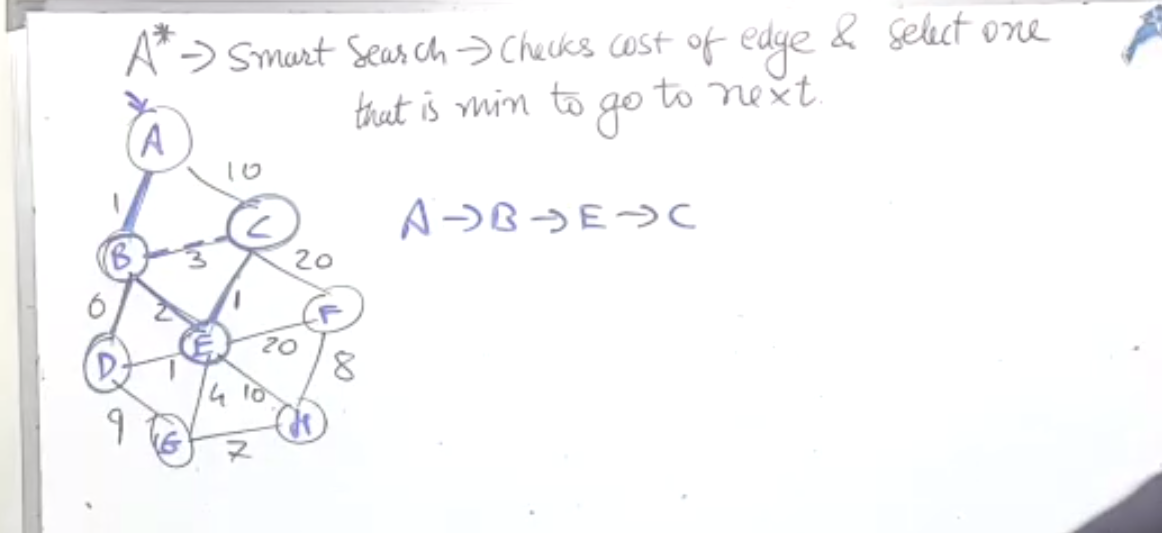 A* → Smart Search → Checks cost of edge & select one
that is min to go to next.
A
10
1
C
A → B → E → C
B
3
20
6
2
1
F
E
D
1
20
8
4
10
9
G
H
7